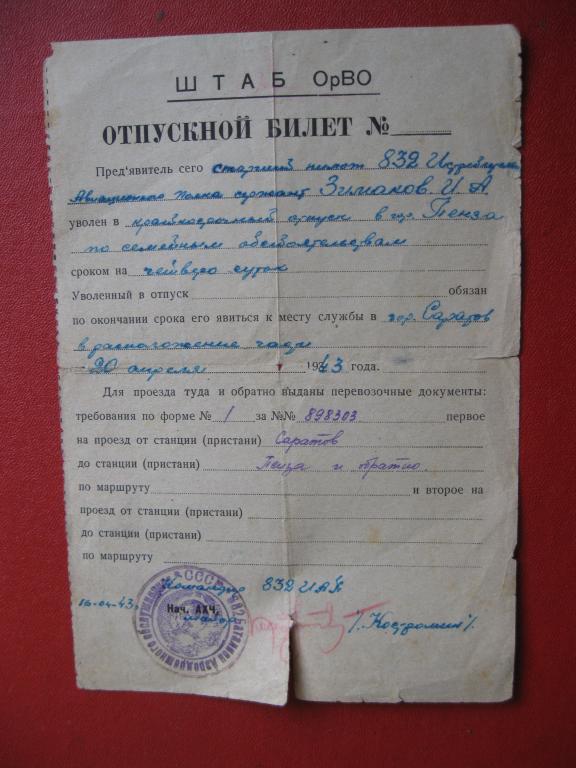 ШТАБ ОрВО
ОТПУСКНОЙ БИЛЕТ №
Пред'явитель сего старший пилот 832 Истребительн
Авиационного полка сержант Зимаков И А
уволен в краткосрочный отпуск в гор. Пенза
по семейным обстоятельствам
сроком на четверо суток
Уволенный в отпуск обязан
по окончании срока его явиться к месту службы в гор. Саратов
в расположение части
20 апреля 1943 года.
Для проезда туда и обратно выданы перевозочные документы:
требования по форме № 1 за №№ 898303 первое
на проезд от станции (пристани) Саратов
до станции (пристани) Пенза и обратно.
по маршруту и второе на
проезд от станции (пристани)
до станции (пристани)
по маршруту
Командир 832 ИАП
16-04-43г.
Нач. АХЧ,
майор
/Костромин/.
СССР
Батальон Аэродромного обслуживания